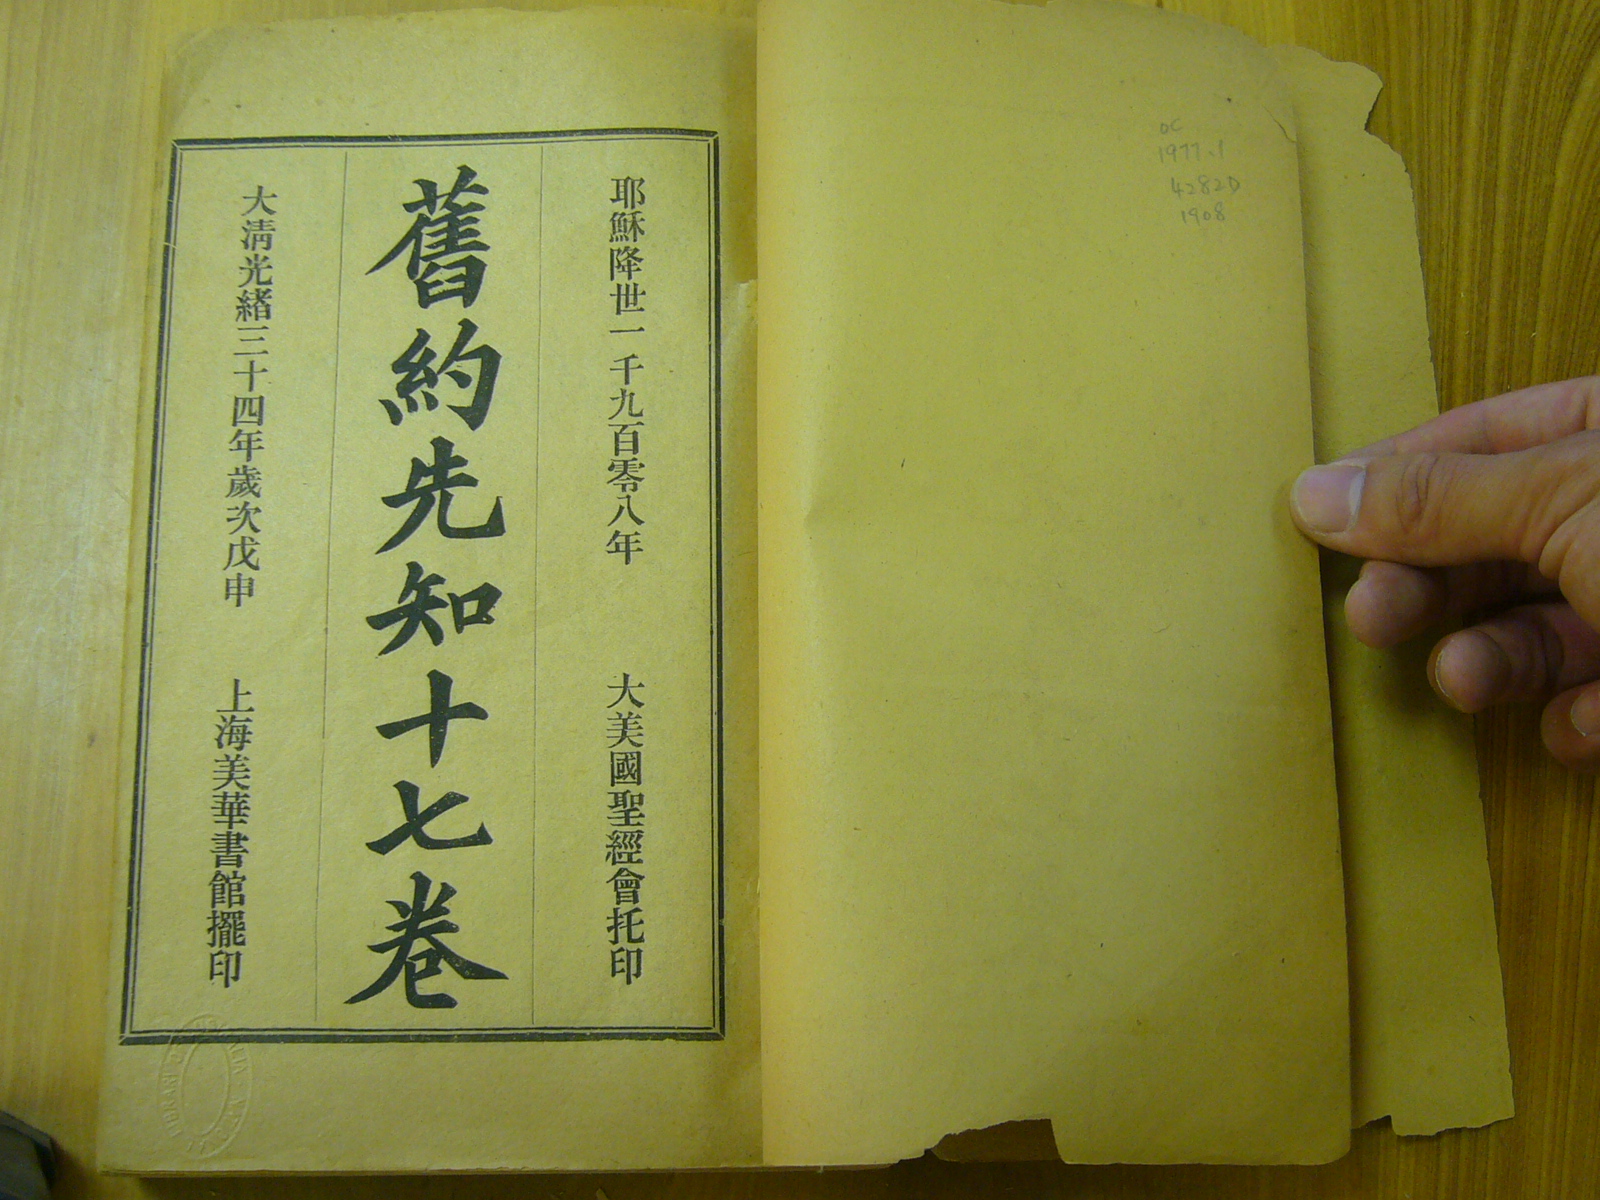 耶穌降世一千九百零八年 大美國聖經會托印
舊約先知十七卷
大清光緒三十四年歲次戊申 上海美華書館擺印
OC
1977.1
4282D
1908